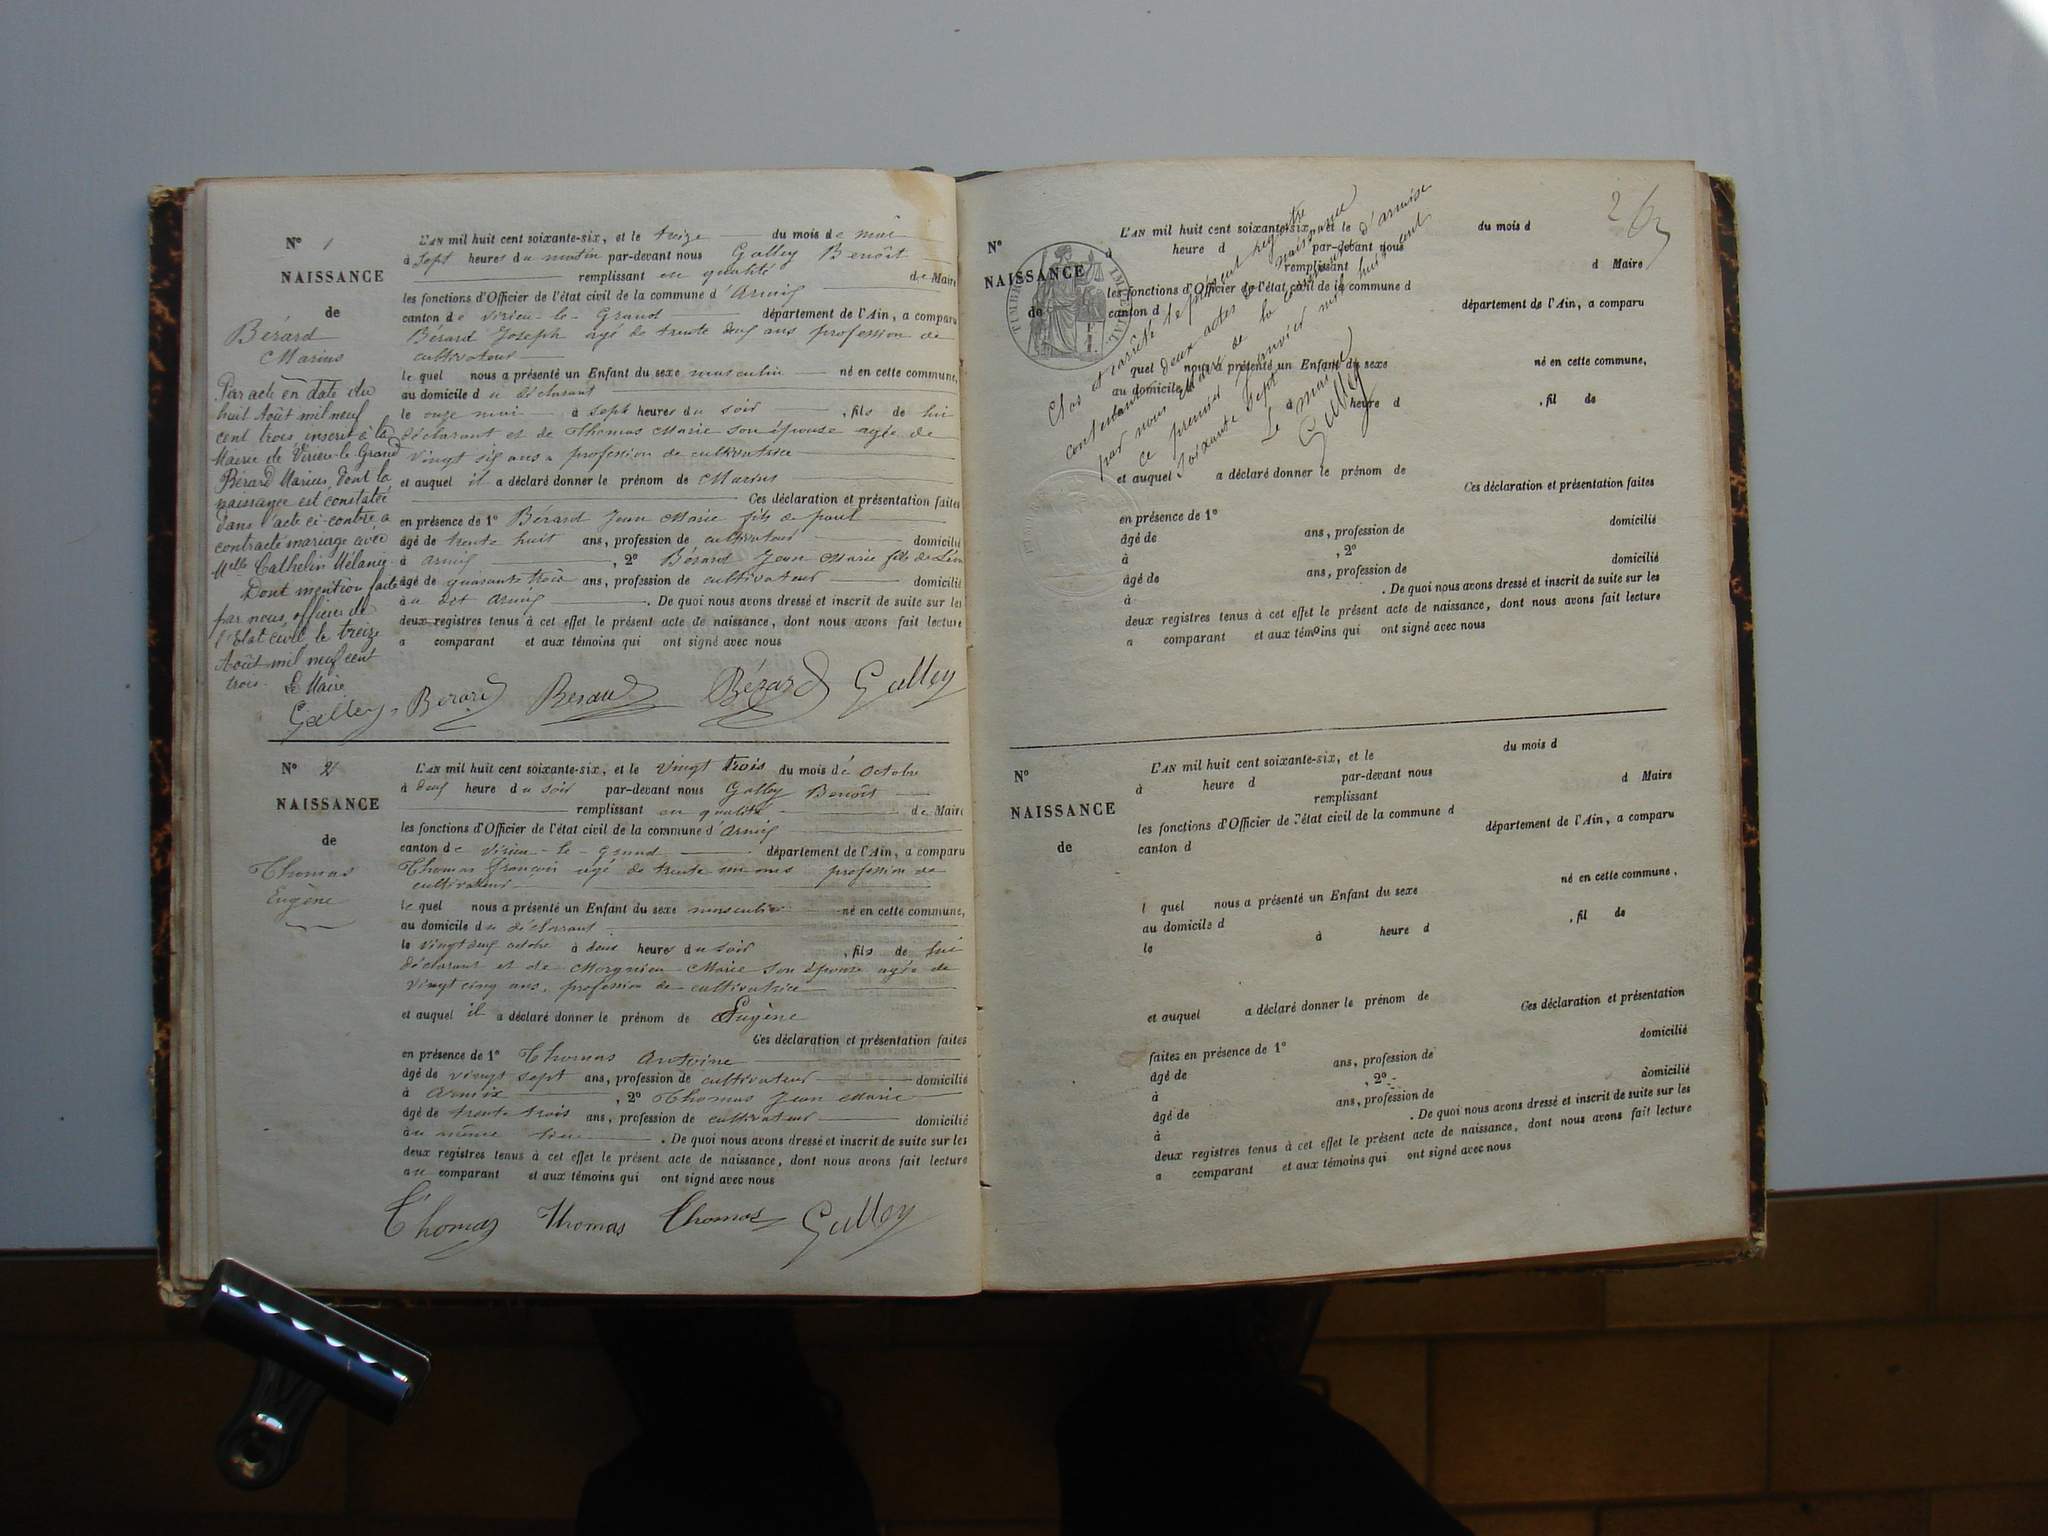 N° 1
NAISSANCE
de
Bérard
Marius
Par acte en date du
huit Août mil neuf
cent trois inscrit à la
Mairie de Virieu-le-Grand
Bérard Marius, dont la
naissance est constatée
dans l'acte ci-contre a
contracté mariage avec
Melle Cathelin Mélanie.
Dont mention faite
par nous, officier de
l'Etat civil le treize
Août mil neuf cent
trois.
Le Maire
Galley
L'AN mil huit cent soixante-six, et le treize du mois de mai
à sept heures du matin par-devant nous Galley Benoît
remplissant en qualité de Maire
les fonctions d'Officier de l'état civil de la commune d'Armix
canton de Virieu-le-Grand département de l'Ain, a comparu
Bérard Joseph agé de trente neuf ans profession de
cultivateur
le quel nous a présenté un Enfant du sexe masculin né en cette commune,
au domicile du déclarant
le onze mai à sept heures du soir, fils de lui
déclarant et de Thomas Marie son épouse agée de
vingt six ans profession de cultivatrice
et auquel il a déclaré donner le prénom de Marius
Ces déclaration et présentation faites
en présence de 1° Bérard Jean Marie fils de paul
âgé de trente huit ans, profession de cultivateur domicilié
à armix, 2° Bérard Jean Marie fils de
âgé de quarante trois ans, profession de cultivateur domicilié
au dit armix. De quoi nous avons dressé et inscrit de suite sur les
deux registres tenus à cet effet le présent acte de naissance, dont nous avons fait lecture
a comparant et aux témoins qui ont signé avec nous
Berard Berard Bérard Galley
N° 2
NAISSANCE
de
Thomas
Eugène
L'AN mil huit cent soixante-six, et le vingt trois du mois de octobre
à deux heure du soir par-devant nous Galley Benoît
remplissant en qualité de Maire
les fonctions d'Officier de l'état civil de la commune d'Armix
canton de Virieu-le-grand département de l'Ain, a comparu
Thomas françois agé de trente un ans profession de
cultivateur
le quel nous a présenté un Enfant du sexe masculin né en cette commune,
au domicile du déclarant
le vingt deux octobre à deux heures du soir, fils de lui
déclarant et de Morgnieu Marie son épouse agée de
vingt cinq ans. profession de cultivatrice
et auquel il a déclaré donner le prénom de Eugène
Ces déclaration et présentation faites
en présence de 1° Thomas Antoine
âgé de vingt sept ans, profession de cultivateur domicilié
à Armix, 2° Thomas Jean Marie
âgé de trente trois ans, profession de cultivateur domicilié
au même lieu. De quoi nous avons dressé et inscrit de suite sur les
deux registres tenus à cet effet le présent acte de naissance, dont nous avons fait lecture
au comparant et aux témoins qui ont signé avec nous
Thomas Thomas Thomas Galley
TIMBRE IMPÉRIAL
Clos et arrêté le présent registre
contenant deux actes de naissance
par nous maire de la commune d'armix
ce premier janvier mil huit cent
soixante sept
Le maire
Galley
N°
NAISSANCE
de
L'AN mil huit cent soixante-six, et le du mois d
à heure d par-devant nous
remplissant d Maire
les fonctions d'Officier de l'état civil de la commune d
canton d département de l'Ain, a comparu
quel nous a présenté un Enfant du sexe né en cette commune,
au domicile d
à heure d, fil de
et auquel a déclaré donner le prénom de
Ces déclaration et présentation faites
en présence de 1°
âgé de ans, profession de domicilié
à, 2°
âgé de ans, profession de domicilié
à. De quoi nous avons dressé et inscrit de suite sur les
deux registres tenus à cet effet le présent acte de naissance, dont nous avons fait lecture
a comparant et aux témoins qui ont signé avec nous
N°
NAISSANCE
de
L'AN mil huit cent soixante-six, et le du mois d
à heure d par-devant nous
remplissant d Maire
les fonctions d'Officier de l'état civil de la commune d
canton d département de l'Ain, a comparu
l quel nous a présenté un Enfant du sexe né en cette commune,
au domicile d
le à heure d, fil de
et auquel a déclaré donner le prénom de
Ces déclaration et présentation
faites en présence de 1° domicilié
âgé de ans, profession de
à, 2° domicilié
âgé de ans, profession de
à. De quoi nous avons dressé et inscrit de suite sur les
deux registres tenus à cet effet le présent acte de naissance, dont nous avons fait lecture
a comparant et aux témoins qui ont signé avec nous